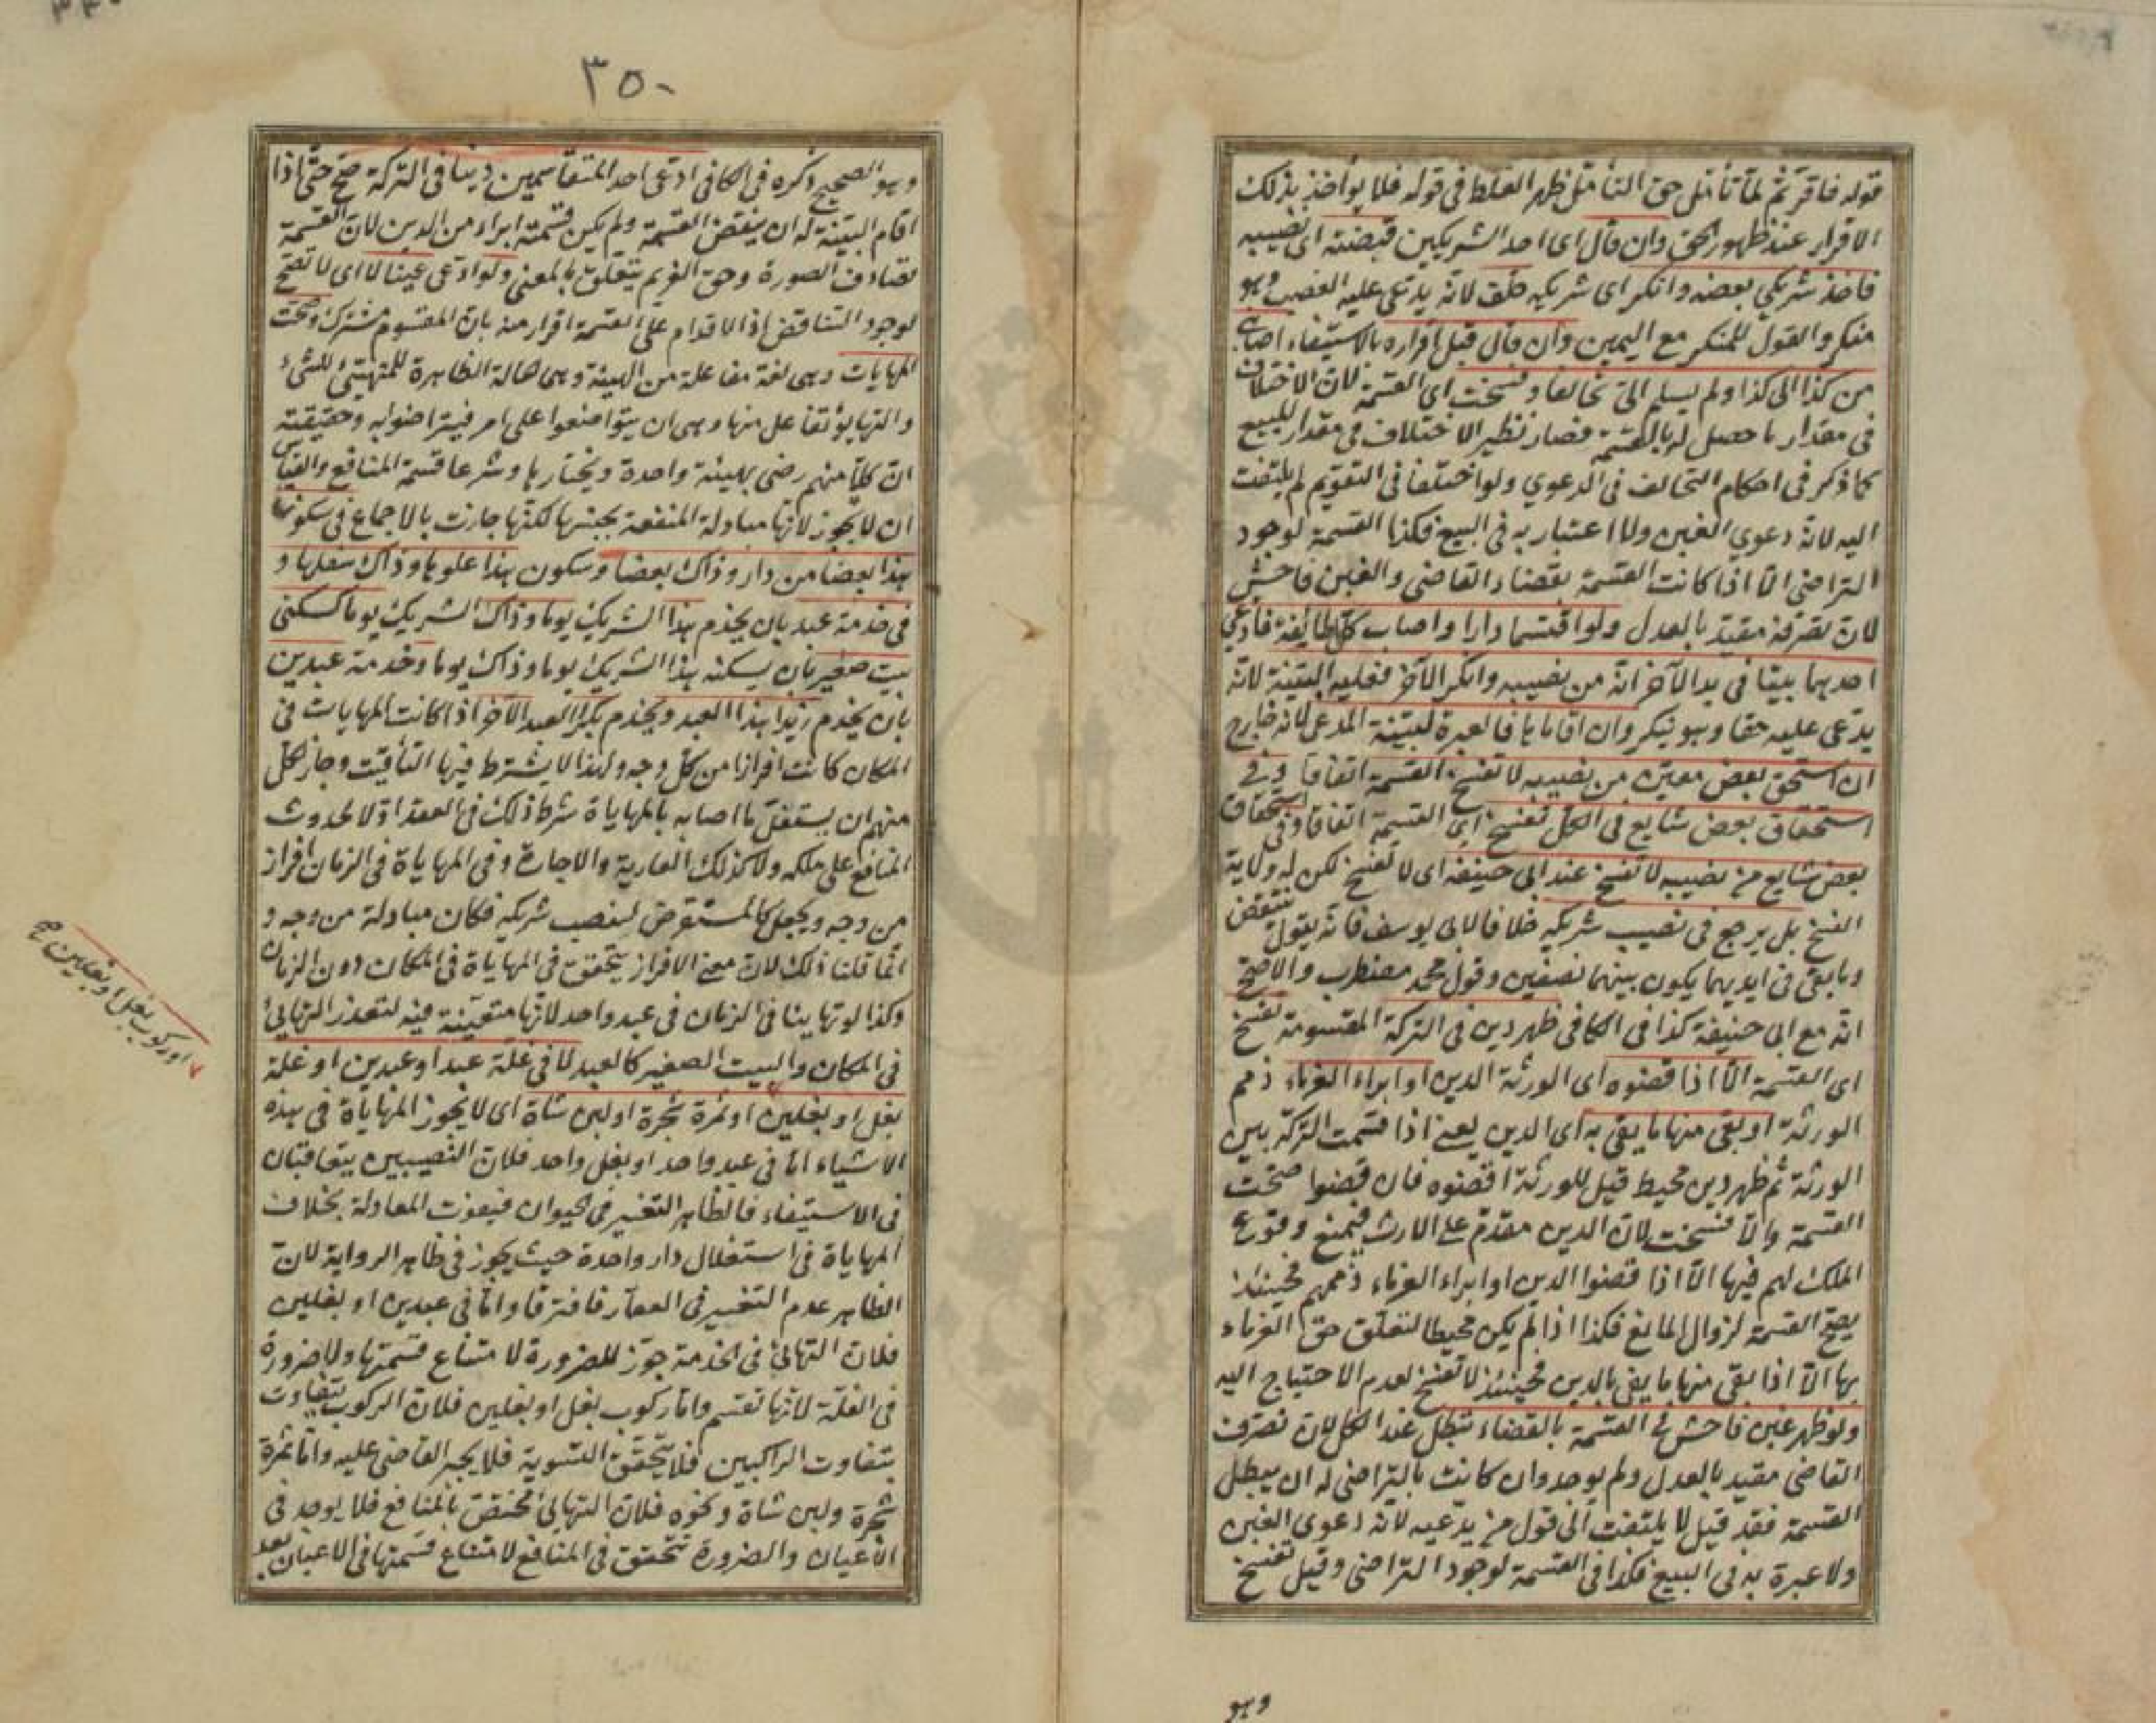 قوله فاقر ثم لما تأمل حق التأمل ظهر الغلط في قوله فلا يؤاخذ بذلك
الاقرار عند ظهور الحق وان قال اى احد الشريكين قبضته اى نصيبه
فاخذ شريكي بعضه وانكر اى شريكه حلف لانه يدعى عليه الغصب وهو
منكر والقول للمنكر مع اليمين وان قال قبل اقراره بالاستيفاء اصابني
من كذا الى كذا ولم يسلم الى تحالفا وفسخت اى القسمة لان الاختلاف
في مقدار ما حصل له بالقسمة فصار نظير الاختلاف في مقدار المبيع
كما ذكر في احكام التحالف في الدعوي ولو اختلفا في التقويم لم يلتفت
اليه لانه دعوي الغبن ولا اعتبار به في البيع فكذا القسمة لوجود
التراضي الا اذا كانت القسمة بقضاء القاضي والغبن فاحش
لان تصرفه مقيد بالعدل ولو اقتسما دارا واصاب كل طائفة فادعى
احدهما بيتا في يد الآخر انه من نصيبه وانكر الآخر فعليه البينة لانه
يدعى عليه حقا وهو ينكر وان اقاماها فالعبرة لبينة المدعى لانه خارج
ان استحق بعض معين من نصيبه لا تفسخ القسمة اتفاقا وفي
استحقاق بعض شايع في الكل تفسخ اى القسمة اتفاقا وفي استحقاق
بعض شايع من نصيبه لا تفسخ عند ابى حنيفة اى لا تفسخ لكن له ولاية
الفسخ بل يرجع في نصيب شريكه خلافا لابى يوسف فانه يقول تنتقض
وما بقى في ايديهما يكون بينهما نصفين وقول محمد مضطرب والاصح
انه مع ابى حنيفة كذا في الكافى ظهر دين في التركة المقسومة تفسخ
اى القسمة الا اذا قضوه اى الورثة الدين او ابراء الغرماء ذمم
الورثة او بقى منها ما يفى به اى الدين يعنى اذا قسمت التركة بين
الورثة ثم ظهر دين محيط قيل للورثة اقضوه فان قضوا صحت
القسمة والا فسخت لان الدين مقدم على الارث فيمنع وقوع
الملك لهم فيها الا اذا قضوا الدين او ابراء الغرماء ذممهم فحينئذ
يصح القسمة لزوال المانع فكذا اذا لم يكن محيطا لتعلق حق الغرماء
بها الا اذا بقى منها ما يفى بالدين فحينئذ لا تفسخ لعدم الاحتياج اليه
ولو ظهر غبن فاحش في القسمة بالقضاء تبطل عند الكل لان تصرف
القاضي مقيد بالعدل ولم يوجد وان كانت بالتراضي له ان يبطل
القسمة فقد قيل لا يلتفت الى قول من يدعيه لانه دعوي الغبن
ولا عبرة به في البيع فكذا في القسمة لوجود التراضي وقيل تفسخ
وهو
٣٥٠
وهو الصحيح ذكره في الكافى ادعى احد المتقاسمين دينا في التركة صح حتى اذا
اقام البينة له ان ينقض القسمة ولم يكن قسمته ابراء من الدين لان القسمة
تصادف الصورة وحق الغريم يتعلق بالمعنى ولو ادعى عينا لا اى لا تصح
لوجود التناقض اذ الاقدام على القسمة اقرار منه بان المقسوم مشترك وصحت
المهايات وهى لغة مفاعلة من الهيئة وهى الحالة الظاهرة للمتهيئ للشئ
والتهايؤ تفاعل منها وهى ان يتواضعوا على امر فيتراضوا به وحقيقته
ان كلا منهم رضى بهيئة واحدة ويختارها وشرعا قسمة المنافع والقياس
ان لا يجوز لانها مبادلة المنفعة بجنسها لكنها جازت بالاجماع في سكون
هذا بعضا من دار وذاك بعضا وسكون هذا علوها وذاك سفلها و
في خدمة عبد بان يخدم هذا الشريك يوما وذاك الشريك يوما كسكنى
بيت صغير بان يسكنه هذا الشريك يوما وذاك يوما وخدمة عبدين
بان يخدم زيدا هذا العبد ويخدم بكرا العبد الآخر اذا كانت المهايات في
المكان كانت افرازا من كل وجه ولهذا لا يشترط فيها التأقيت وجاز لكل
منهم ان يستغل ما اصابه بالمهاياة شرط ذلك في العقد او لا لحدوث
المنافع على ملكه ولا كذلك العارية والاجارة وفي المهاياة في الزمان افراز
من وجه ويجعل كالمستقرض لنصيب شريكه فكان مبادلة من وجه و
انما قلنا ذلك لان معنى الافراز يتحقق في المهاياة في المكان دون الزمان
وكذا لو تهايئا في الزمان في عبد واحد لانها متعينة فيه لتعذر التهايئ
في المكان والبيت الصغير كالعبد لا في غلة عبد او عبدين او غلة
بغل او بغلين او ثمرة شجرة او لبن شاة اى لا يجوز المهاياة في هذه
الاشياء اما في عبد واحد او بغل واحد فلان النصيبين يتعاقبان
في الاستيفاء فالظاهر التغير في الحيوان فيفوت المعادلة بخلاف
المهاياة في استغلال دار واحدة حيث يجوز في ظاهر الرواية لان
الظاهر عدم التغير في العقار فافترقا واما في عبدين او بغلين
فلان التهايئ في الخدمة جوز للضرورة لامتناع قسمتها ولا ضرورة
في الغلة لانها تقسم واما ركوب بغل او بغلين فلان الركوب يتفاوت
بتفاوت الراكبين فلا يتحقق التسوية فلا يجبر القاضي عليه واما ثمرة
شجرة ولبن شاة ونحوه فلان التهايئ مختص بالمنافع فلا يوجد في
الاعيان والضرورة تتحقق في المنافع لامتناع قسمتها في الاعيان بعد
او ركوب بغل او بغلين صح